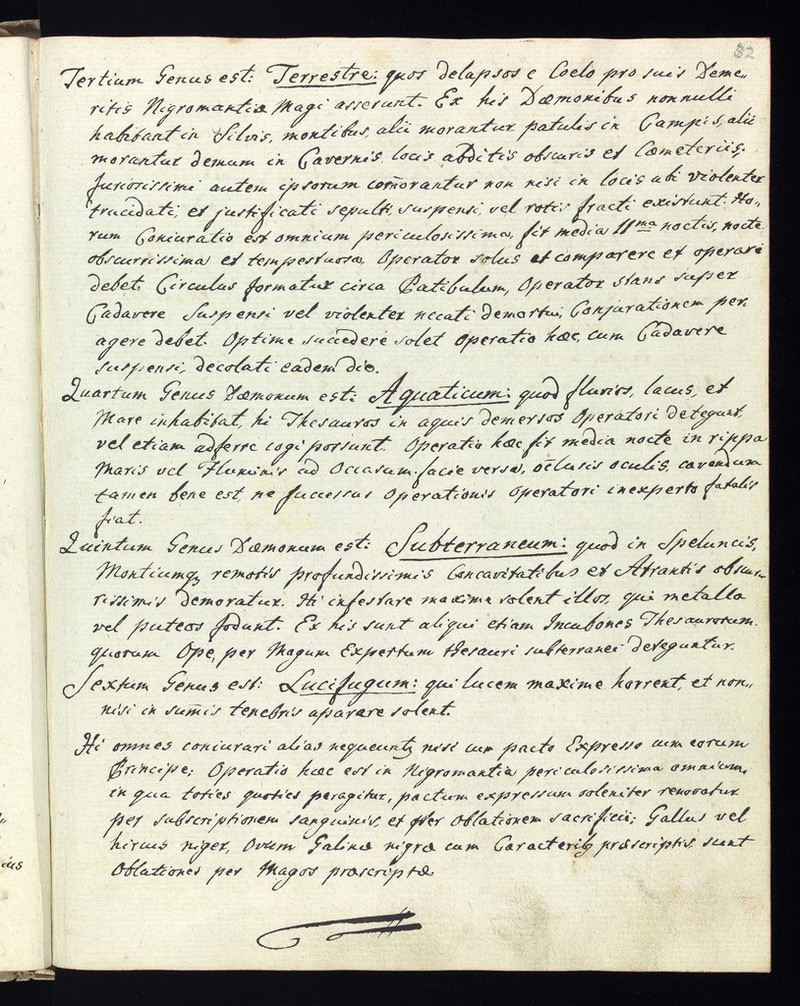 82
Tertium Genus est: Terrestre: quos delapsos e Coelo pro suis Deme„
ritis Nigromantiæ Magi asserunt. Ex his Dæmonibus nonnulli
habitant in Silvis, montibus, alii morantur patulis in Campis, alii
morantur demum in Cavernis locis abditis obscuris et Cœmeteriis;
furiosissimi autem ipsorum com̄orantur non nisi in locis ubi violenter
trucidati, et justificati sepulti, suspensi, vel rotis fracti existunt. Ho„
rum Coniuratio est omnium periculosissima, fit media 11ma noctis, nocte
obscurrissima et tempestuosa, Operator solus et comparere et operari
debet, Circulus formatur circa Patibulum, Operator stans super
Cadavere Suspensi vel violenter necati demortui, Conjurationem per
agere debet. Optime succedere solet operatio hæc, cum Cadavere
suspensi, decolati eadem die.
Quartum Genus Dæmonum est: Aquaticum: quod fluvios, lacus, et
Mare inhabitat, hi Thesauros in aquis demersos Operatori detegunt,
vel etiam adferre cogi possunt. Operatio hæc fit media nocte in rippa
Maris vel Fluminis ad Occasum facie versa, oclusis oculis, cavendum
tamen bene est, ne successus Operationis Operatori inexperto fatalis
fiat.
Quintum Genus Dæmonum est: Subterraneum: quod in Speluncis,
Montiumq, remotis profundissimis Concavitatibus et Atrantis obscu„
rissimis demoratur. Hi infestare maxime solent illos, qui metalla
vel puteos fodunt. Ex his sunt aliqui etiam Incubones Thesaurorum.
quorum Ope, per Magum Expertum thesauri subterranei deteguntur.
Sextum Genus est: Lucifugum: qui lucem maxime horrent, et non„
nisi in sum̄is tenebris aparære solent.
Hi omnes coniurari alias nequeunt, nisi cum pacto Expresso cum eorum
Principe; Operatio hæc est in Nigromantia periculosissima omnium,
in qua toties quoties peragitur, pactum expressum soleniter renovatur
per subscriptionem sanguinis, et per Oblationem sacrificii; Gallus vel
hircus niger, Ovum Galinæ nigræ cum Caracterib, præscriptis, sunt
Oblationes per Magos præscriptæ.
ius